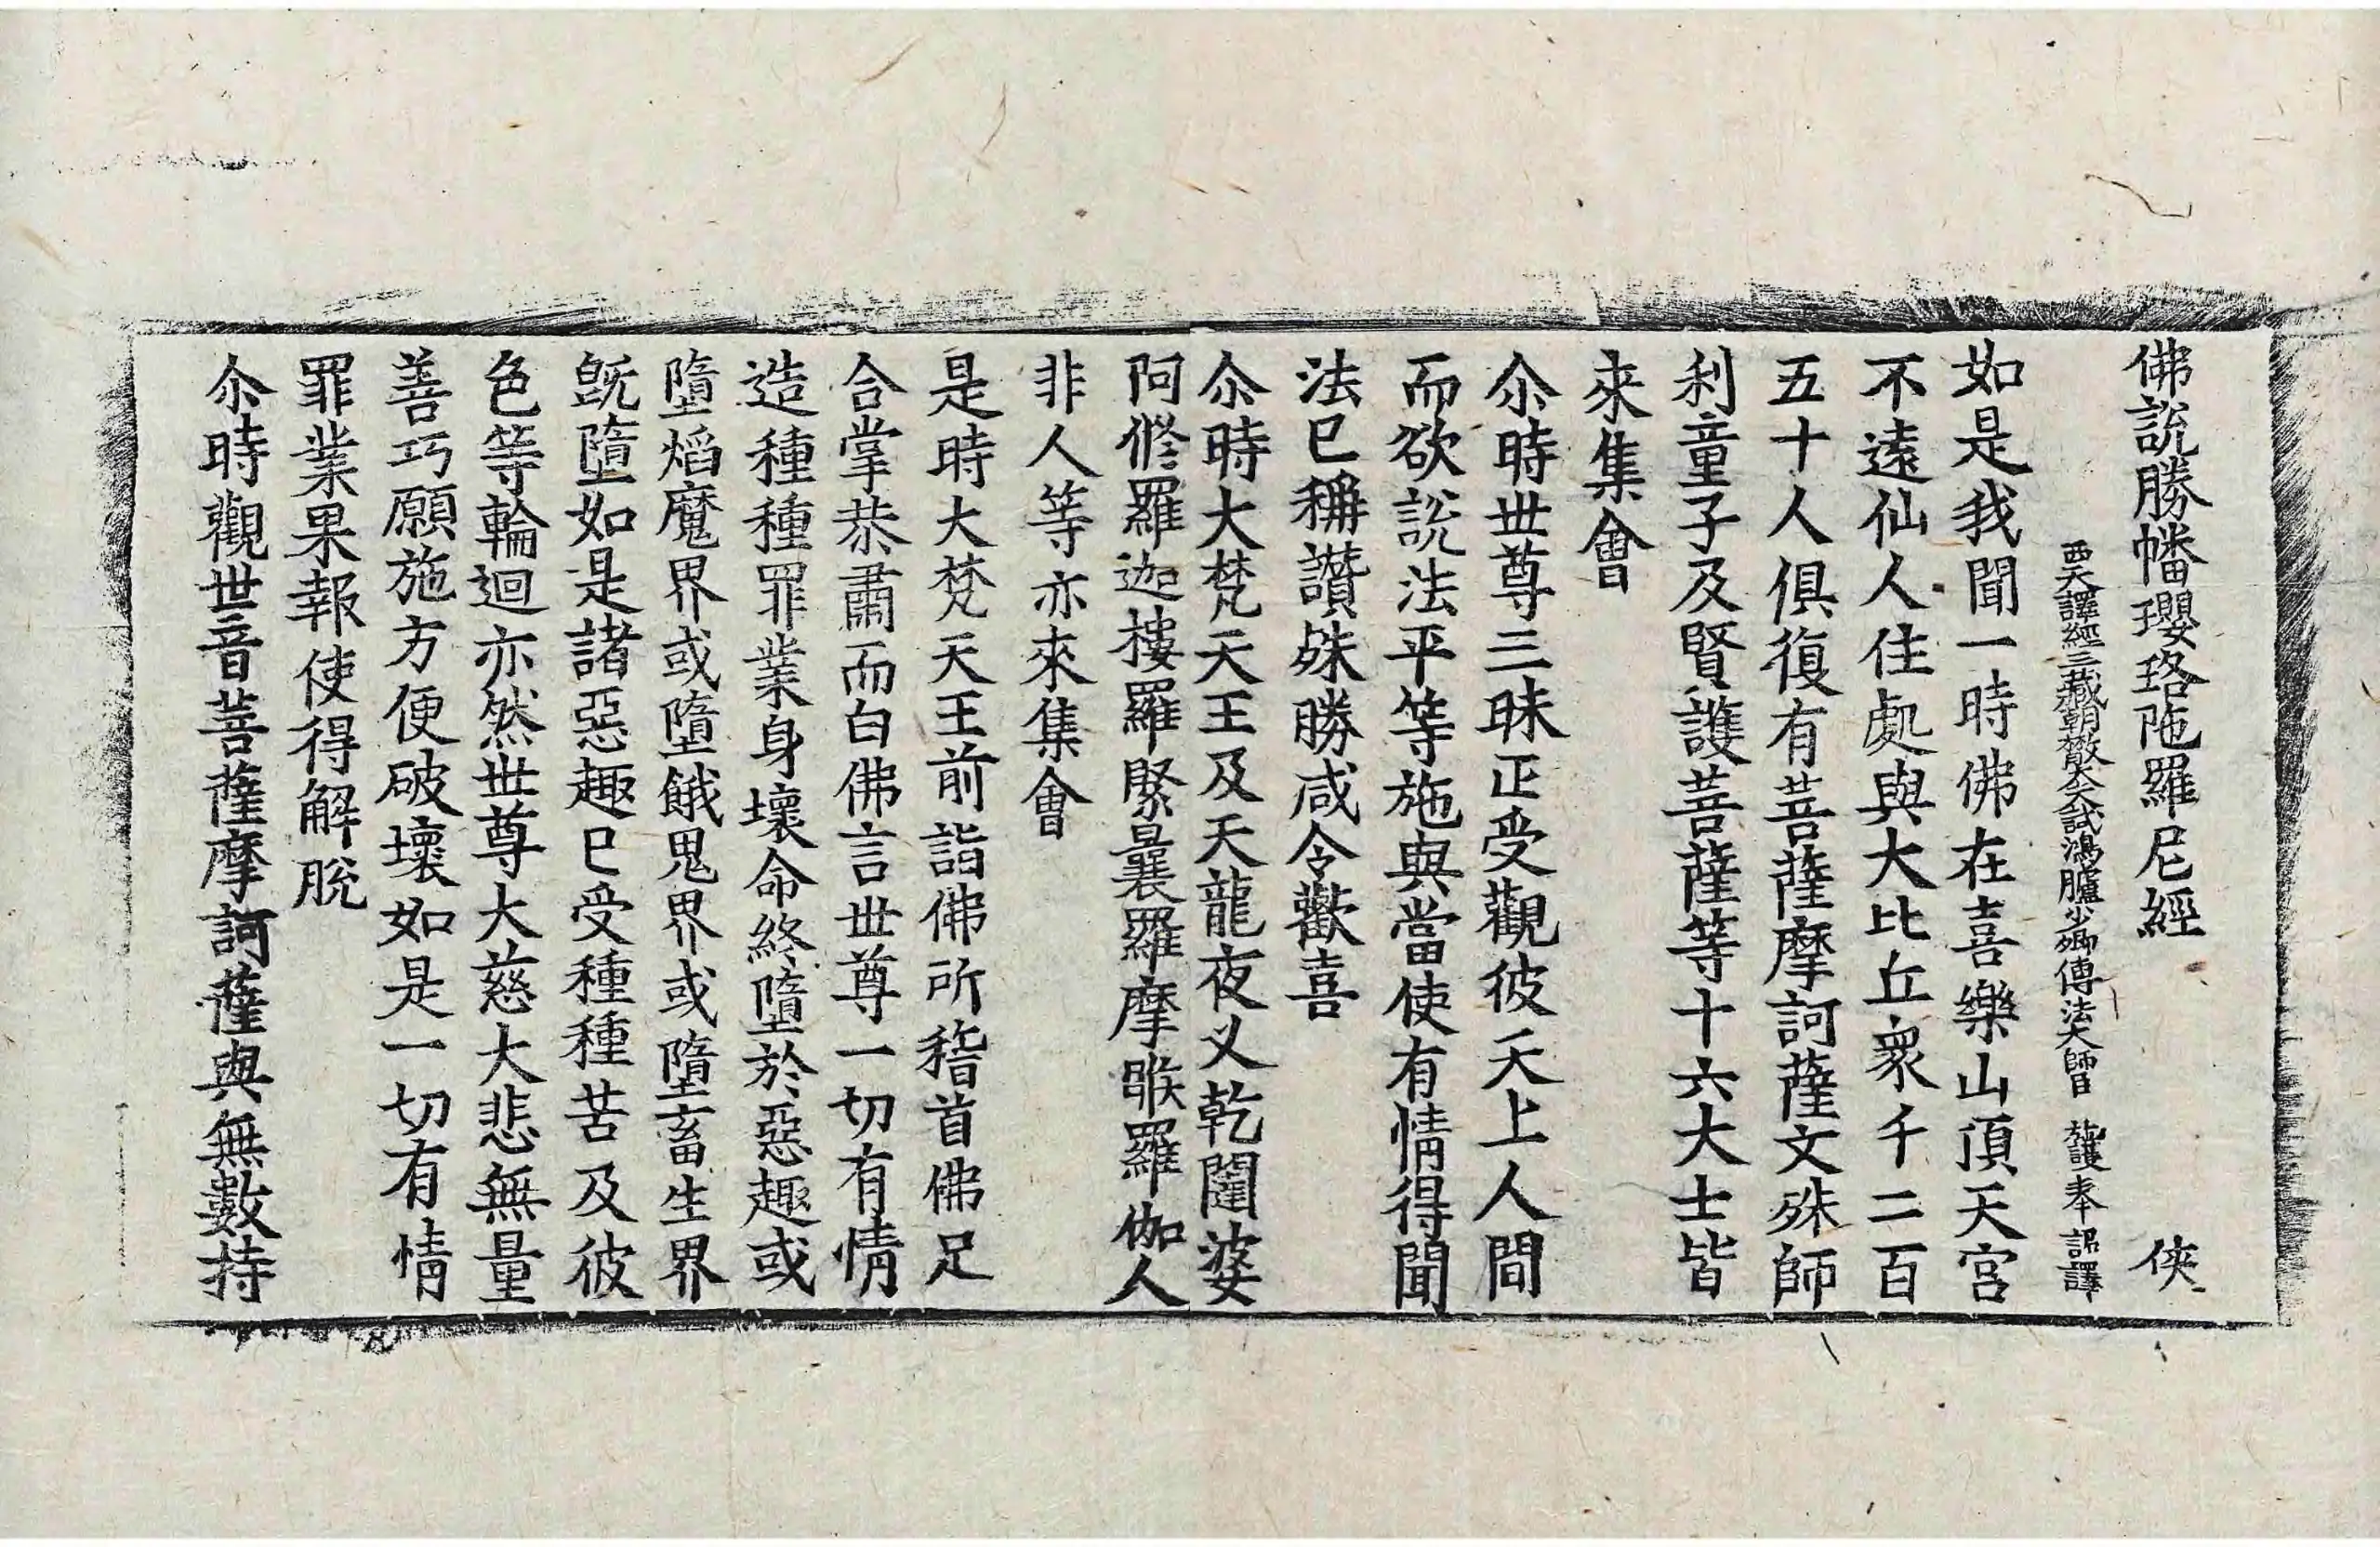 佛說勝幡瓔珞陁羅尼經 俠
西天譯經三藏朝散大夫試鴻臚少卿傳法大師臣 施護奉 詔譯
如是我聞一時佛在喜樂山頂天宮
不遠仙人住處與大比丘衆千二百
五十人俱復有菩薩摩訶薩文殊師
利童子及賢護菩薩等十六大士皆
來集會
尒時世尊三昧正受觀彼天上人間
而欲說法平等施與當使有情得聞
法已稱讚殊勝咸令歡喜
尒時大梵天王及天龍夜叉乾闥婆
阿修羅迦樓羅緊曩羅摩睺羅伽人
非人等亦來集會
是時大梵天王前詣佛所稽首佛足
合掌恭肅而白佛言世尊一切有情
造種種罪業身壞命終墮於惡趣或
墮焰魔界或墮餓鬼界或墮畜生界
旣墮如是諸惡趣已受種種苦及彼
色等輪迴亦然世尊大慈大悲無量
善巧願施方便破壞如是一切有情
罪業果報使得解脫
尒時觀世音菩薩摩訶薩與無數持